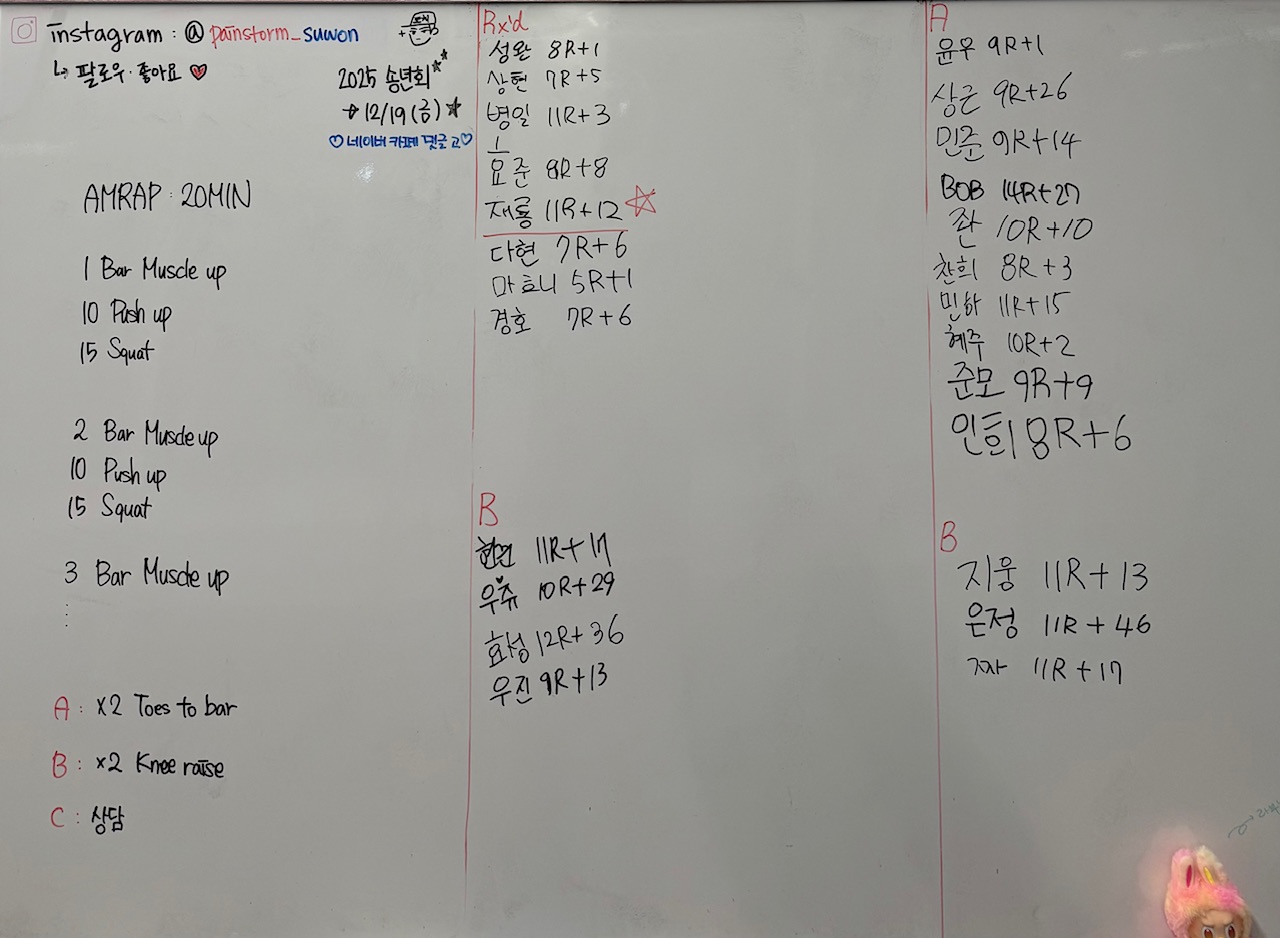 instagram : @painstorm_suwon
↳ 팔로우·좋아요 ♥
2025 송년회
→ 12/19 (금) ★
♡네이버 카페 댓글 고♡
AMRAP : 20MIN
1 Bar Muscle up
10 Push up
15 Squat
2 Bar Muscle up
10 Push up
15 Squat
3 Bar Muscle up
⋮
A : x2 Toes to bar
B : x2 Knee raise
C : 상담
Rx'd
성완 8R+1
상현 7R+5
병일 11R+3
효준 8R+8
재룡 11R+12 ☆
다현 7R+6
마효니 5R+1
경호 7R+6
B
11R+17
우쥬 10R+29
효성 12R+36
우진 9R+13
A
윤우 9R+1
상근 9R+26
민준 9R+14
BOB 14R+27
좐 10R+10
찬희 8R+3
민하 11R+15
혜주 10R+2
준모 9R+9
인희 8R+6
B
지웅 11R+13
은정 11R+46
짜 11R+17